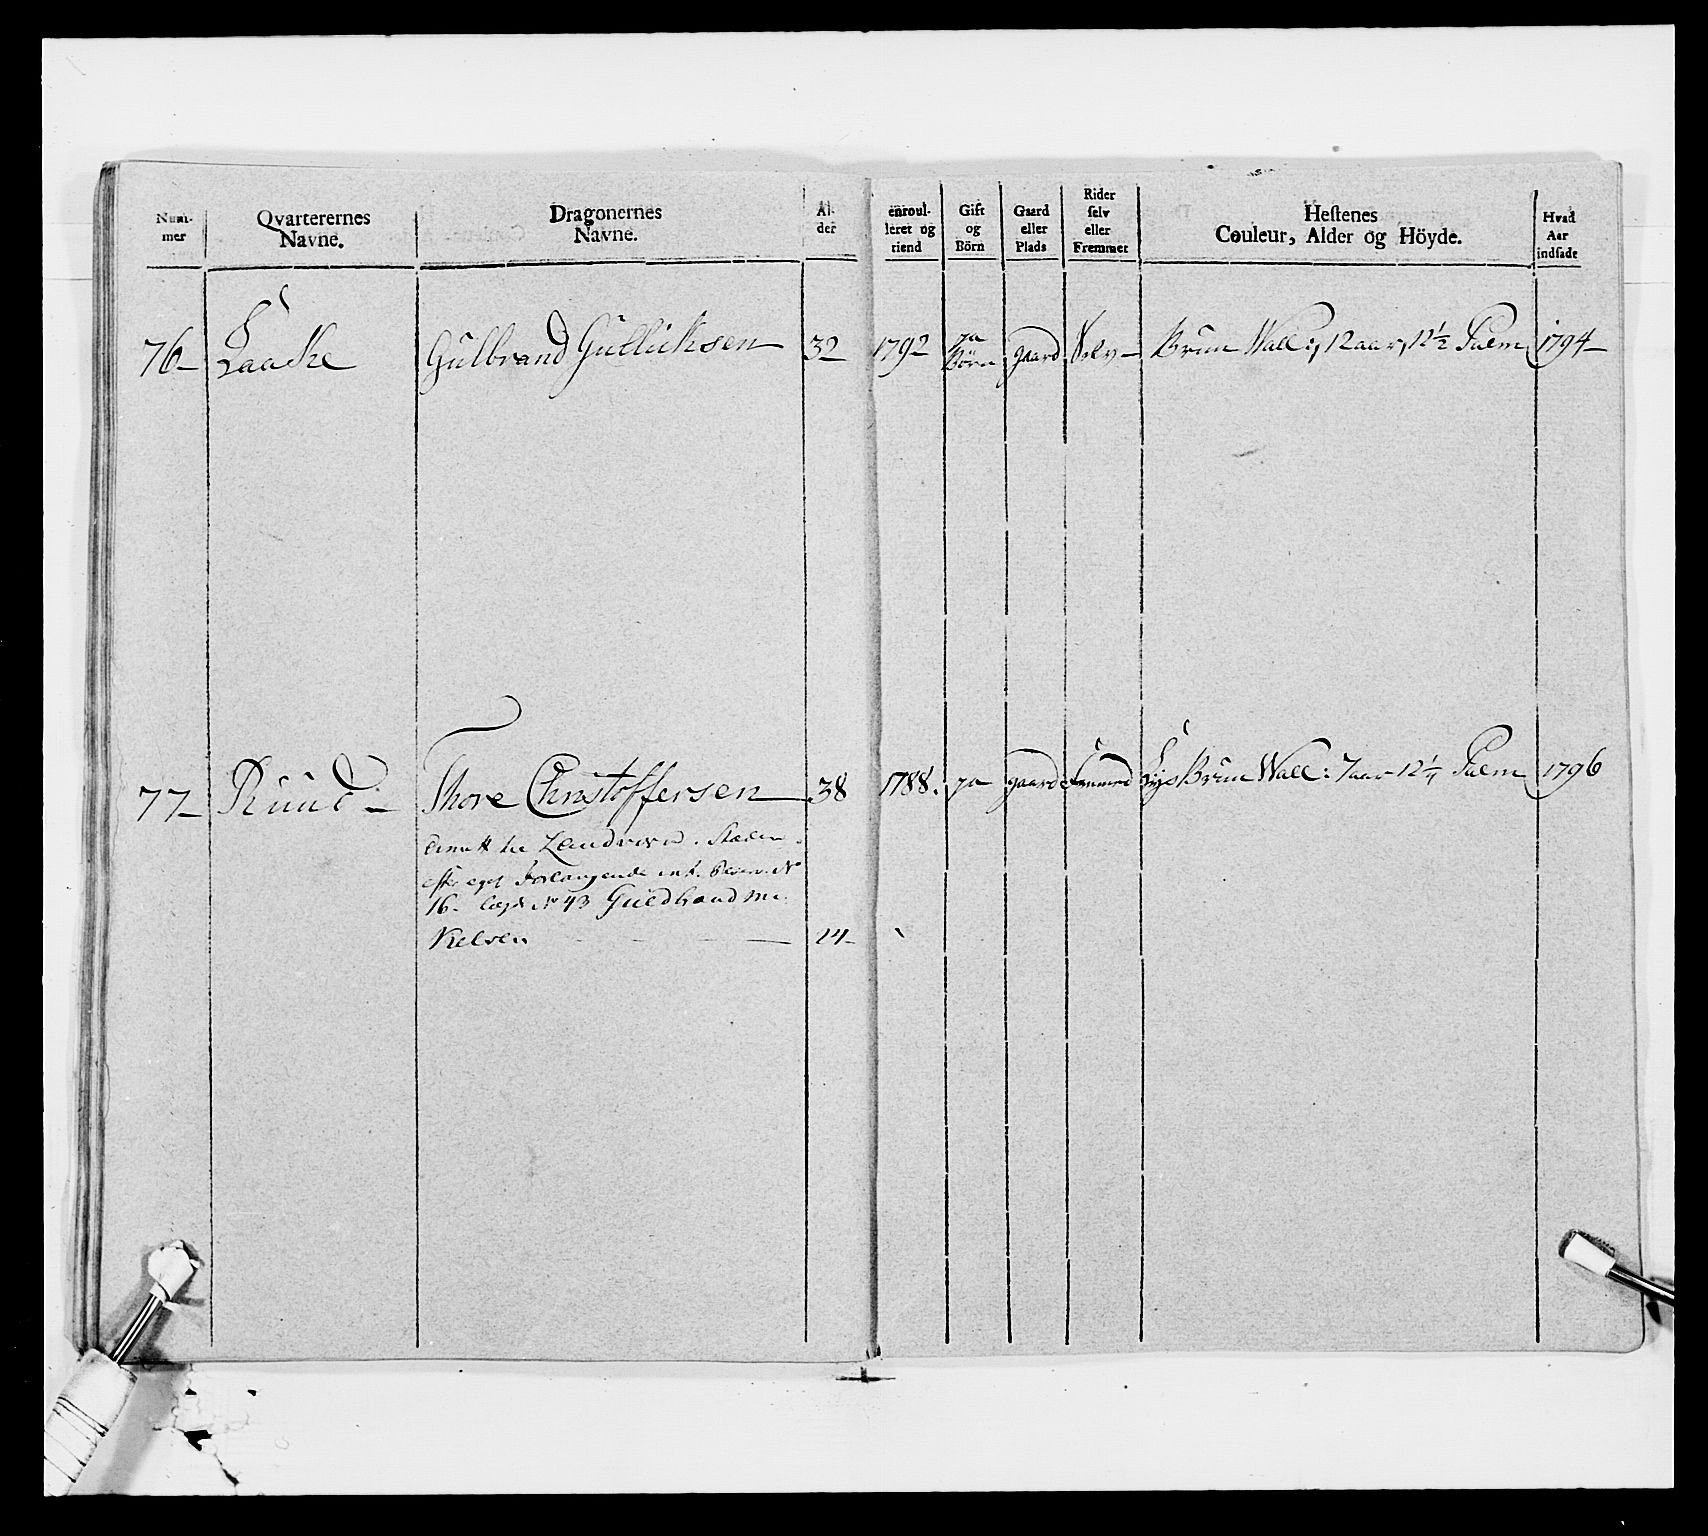 Num-
mer
Qvarterernes
Navne.
Dragonernes
Navne.
Al-
der
enroul-
leret og
tiend
Gift
og
Börn
Gaard
eller
Plads
Rider
selv
eller
Fremmet
Hestenes
Couleur, Alder og Höyde.
Hvad
Aar
indsadt
76- Laake Gulbrand Gulliksen 32 1792 ja Börn gaard Selv - Brun Wall: 12 aar, 12½ Palm 1794-
77- Ruud - Thore Christoffersen 38 1788. ja gaard fremmed Lys Brun Wall: 7 aar 12¼ Palm 1796
til Landvern. Steden
efter eget Forlangende
16- Lægd No 43 Guldbrand Mi-
kelsen - - - 24-